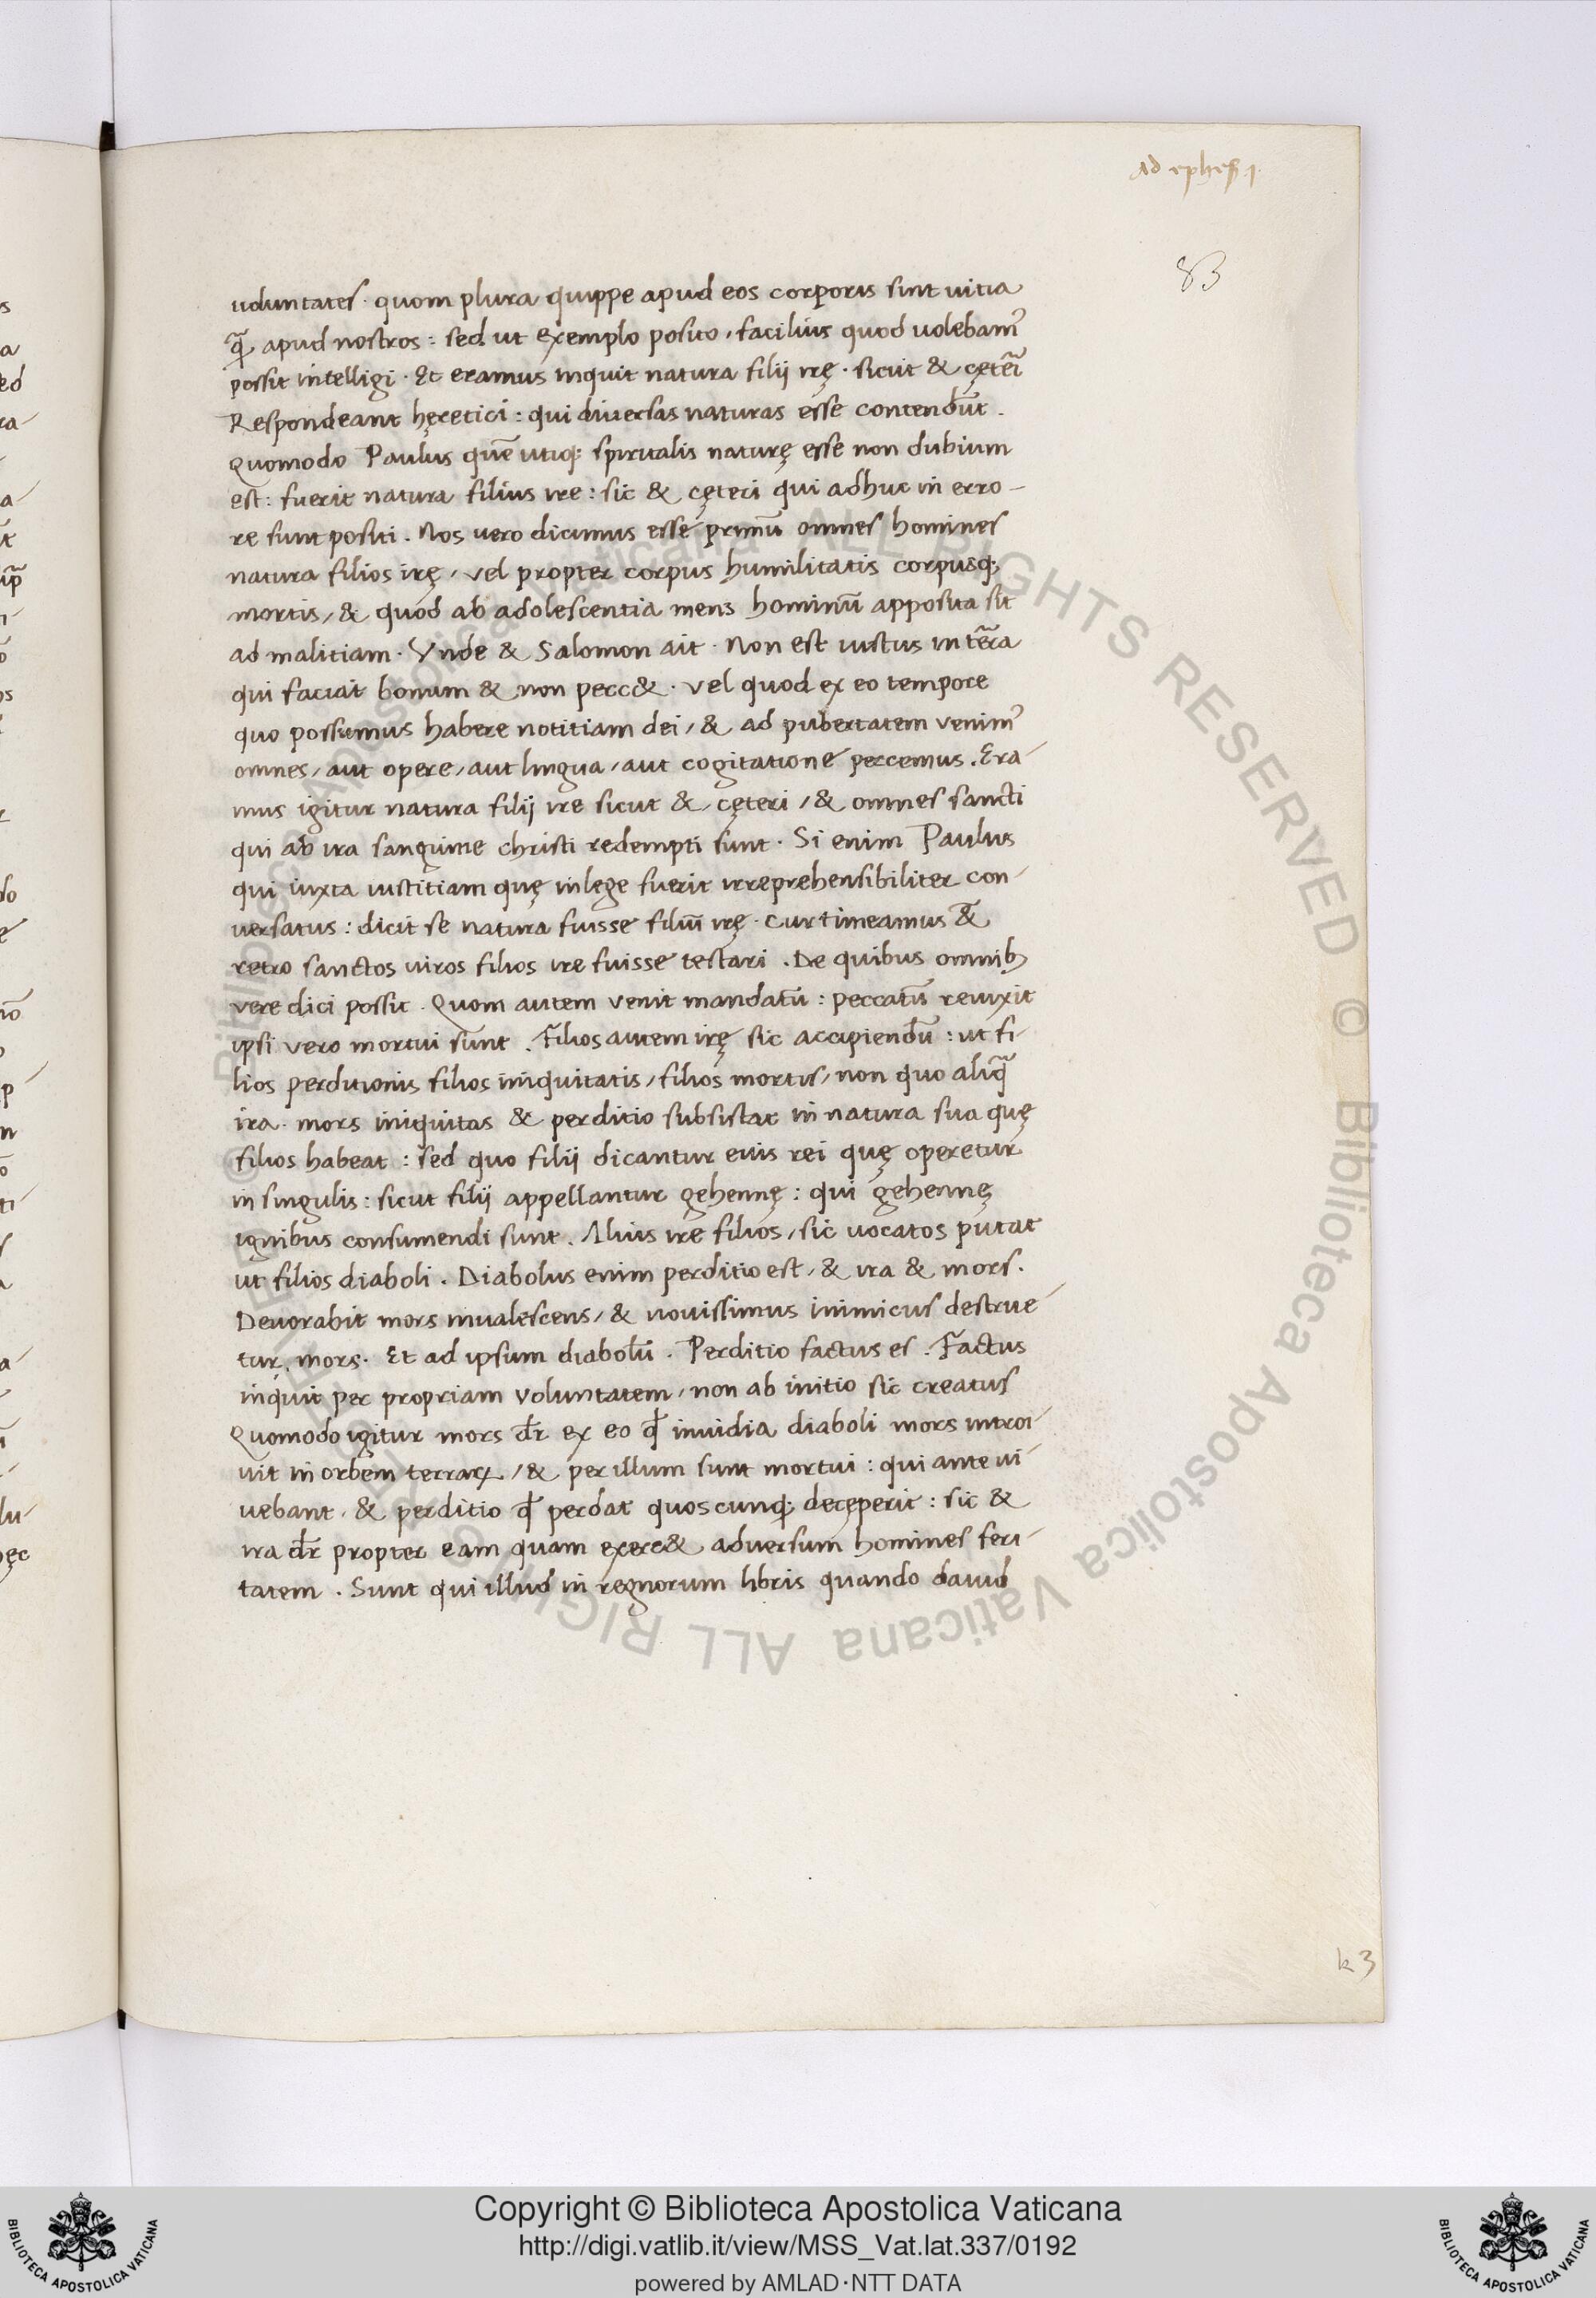 Ad ephes. 1.
83
uoluntates. quom plura quippe apud eos corporis sint uitia
q̃ apud nostros : sed ut exemplo posito, facilius quod uolebam᾽
possit intelligi. Et eramus inquit natura filij irę. sicut & cęterĩ
Respondeant hęretici : qui diuersas naturas esse contendũt.
Quomodo Paulus quẽ utiq; spiritalis naturę esse non dubium
est : fuerit natura filius ire : sic & cęteri qui adhuc in erro-
re sunt positi. Nos vero dicimus esse primũ omnes homines
natura filios irę, vel propter corpus humilitatis corpusq;
mortis, & quod ab adolescentia mens hominũ apposita sit
ad malitiam. Vnde & Salomon ait. Non est iustus in tẽra
qui faciat bonum & non pecc&. vel quod ex eo tempore
quo possumus habere notitiam dei, & ad pubertatem venim᾽
omnes, aut opere, aut lingua, aut cogitatione percemus. Era-
mus igitur natura filij ire sicut & cęteri, & omnes sancti
qui ab ira sanguine christi redempti sunt. Si enim Paulus
qui iuxta iustitiam quę in lege fuerit irreprehensibiliter con-
versatus : dicit se natura fuisse filiũ irę. cur timeamus &̃
retro sanctos uiros filios ire fuisse testari. De quibus omnib;
vere dici possit. Quom autem venit mandatũ : peccatũ reuixit
ipsi vero mortui sunt. Filios autem irę sic accipiendũ : ut fi-
lios perditionis filios iniquitatis, filios mortis, non quo aliq̃
ira. mors iniquitas & perditio subsistat in natura sua quę
filios habeat : sed quo filij dicantur eius rei quę operetur
in singulis : sicut filij appellantur gehennę : qui gehennę
ignibus consumendi sunt. Alius ire filios, sic uocatos putat
ut filios diaboli. Diabolus enim perditio est, & ira & mors.
Deuorabit mors inualescens, & nouissimus inimicus destrue-
tur. mors. Et ad ipsum diabolũ. Perditio factus es. Factus
inquit per propriam voluntatem, non ab initio sic creatus
Quomodo igitur mors dr̃ ex eo qđ inuidia diaboli mors introi-
uit in orbem terraꝝ, & per illum sunt mortui : qui ante ui-
uebant. & perditio qđ perdat quoscunq; decęperit : sic &
ira dr̃ propter eam quam exerc& aduersum homines feri-
tatem. Sunt qui illud in regnorum libris quando dauid
k 3
Copyright © Biblioteca Apostolica Vaticana
http://digi.vatlib.it/view/MSS_Vat.lat.337/0192
powered by AMLAD·NTT DATA